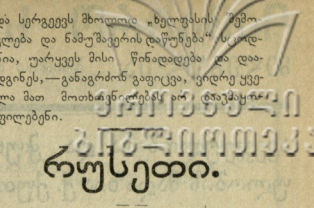 და სერგეევს მხოლოდ „ხელფასის შემო-
ლება და ნამუშავერის დაწუნება“
ნია, უარყვეს მისი წინადადება და დაა-
დგინეს,—განაგრძონ გაფიცვა, ვიდრე ყვე-
ლა მათ მოთხოვნილებას არ დააკმაყო-
ფილებენი.
ეროვნული
ბიბლიოთეკა
რუსეთი.